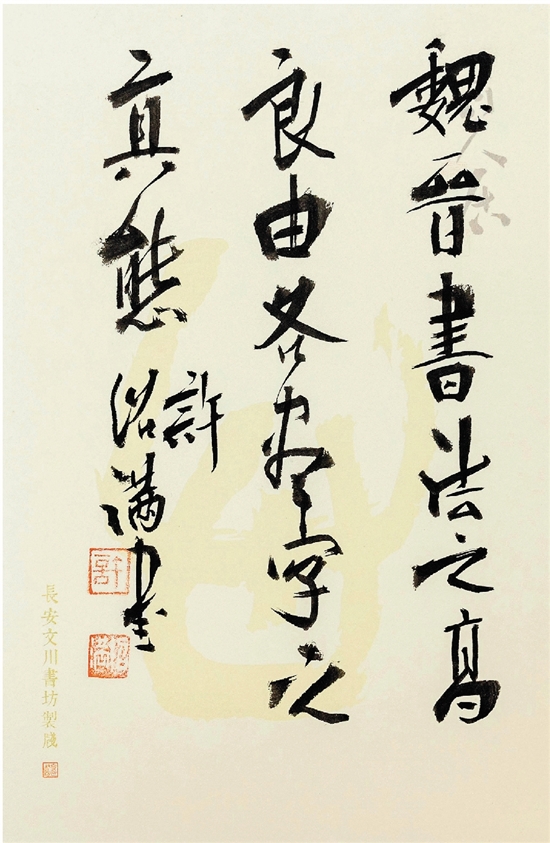 魏晉書法之高
良由各盡字之
真態
許
洺滿書
許
長安文川書坊製牋